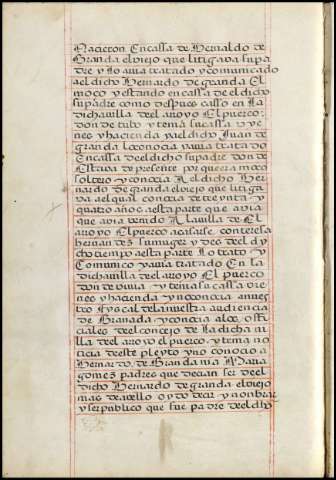 nacieron En cassa de hernaldo de
Granda el viejo que litigava su pa
dre y lo avia tratado y comunicado
al dicho hernardo de granda El
moco y estando en cassa de el dicho
su padre como despues casso en la
dicha villa del arroyo El puerco
don de tubo y tenia su cassa vye
nes y hacienda y al dicho Juan de
granda lo conocia y avia tratado
En cassa de el dicho su padre don de
Estava de presente por que era moco
soltero y conocia Al dicho her
nardo de granda el viejo que litiga
va al qual conocia de treynta y
quatro años a esta parte que avia
que avia benido A la villa de El
arroyo El puerco a casarse con teresa
hernandez su muger y des de el d y
cho tiempo a esta parte lo trato y
Comunico y avia tratado En la
dicha villa del arroyo El puerco
don de bivia y tenia su cassa e bie
nes y hacienda y no conocia a nues
tro fyscal de la nuestra audiencia
de Granada y conocia a los offi
ciales del concejo de la dicha vi
lla del arroyo el puerco y tenia no
ticia de este pleyto y no conocio a
hernardo de Granda ni a Maria
gomez padres que decian ser de el
dicho hernardo de granda el viejo
mas de avello oydo decir y nonbrar
y ser publico que fue padre del dho